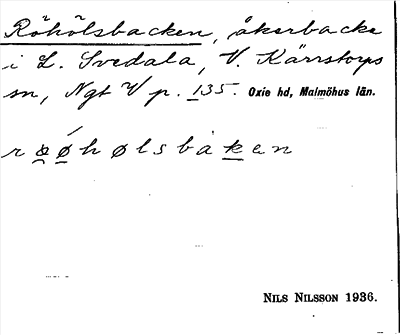 Röhölsbacken, åkerbacke
i L. Svedala, V. Kärrstorps
sn, Ngt V p. 135. Oxie hd, Malmöhus län.
røǿhølsbaken
NILS NILSSON 1936.